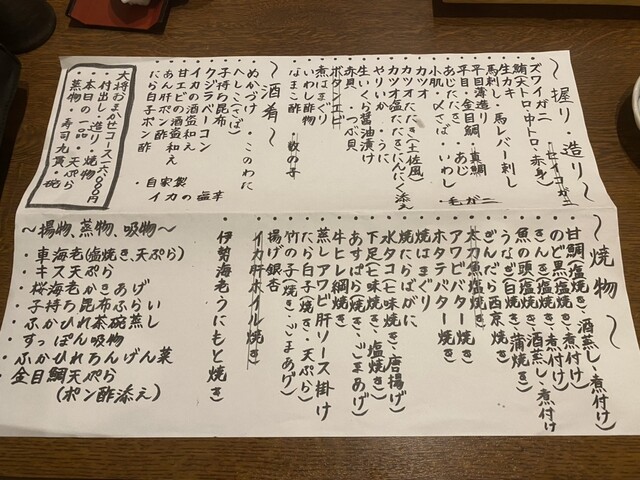 〜握り・造り〜
ズワイガニ ・セイコガニ
鮪(大トロ・中トロ・赤身)
・生カキ
・馬刺し・馬レバー刺し
・平目薄造り ・真鯛
・平目・金目鯛・あじ
・あじたたき
・小肌・〆さば・いわし ・毛ガニ
・カツオ
・カツオたたき(土佐風)
・カツオ塩たたきにんにく添え
・やりいか・うに
・生いくら醤油漬け
・赤貝・つぶ貝
・ボタンエビ
・煮はまぐり
・いわし酢物
・なまこ酢 ・数の子
〜酒肴〜
・ぬかづけ・このわた
・へしこ(さば)
・クジラベーコン
・子持ち昆布
・イカの酒盗和え
・甘エビの酒盗和え
・あん肝ポン酢
・たら白子ポン酢
・自家製
イカの塩辛
大将おまかせコース(六,000円)
付出し・造り・焼物
本日の一品・天ぷら
蒸物・寿司九貫・椀
〜焼物〜
・甘鯛(塩焼き、酒蒸し、煮付け)
・のど黒(塩焼き、煮付け)
・きんき(塩焼き、酒蒸し、煮付け)
・魚の頭(塩焼き、酒蒸し、煮付け)
・うなぎ(白焼き、蒲焼き)
・ぎんだら西京焼き
・太刀魚塩焼き
・アワビバター焼き
・ホタテバター焼き
・焼はまぐり
・焼たらばがに
・水タコ(七味焼き、唐揚げ)
・下足(七味焼き、塩焼き)
・あすぱら(焼き、ごまあげ)
・牛ヒレ網焼き
・蒸しアワビ肝ソース掛け
・たら白子(焼き、天ぷら)
・竹の子(焼き、ごまあげ)
・揚げ銀杏
・イカ肝ホイル焼き
・伊勢海老うにもと焼き
〜揚物、蒸物、吸物〜
・車海老(塩焼き、天ぷら)
・キス天ぷら
・桜海老かきあげ
・子持ち昆布ふらい
・ふかひれ茶碗蒸し
・すっぽん吸物
・ふかひれあんげん菜
・金目鯛天ぷら
(ポン酢添え)